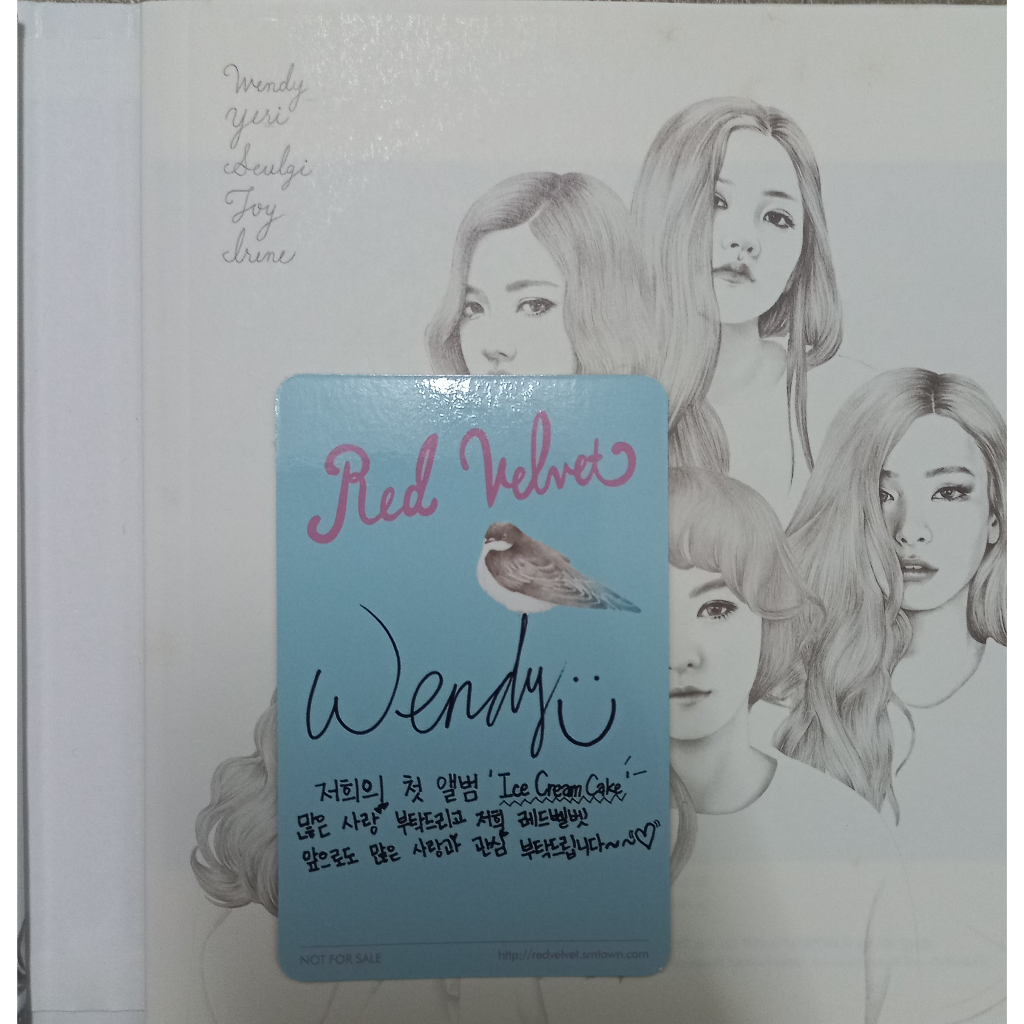 Wendy
Yeri
Seulgi
Joy
Irene
Red Velvet
Wendy
저희의 첫 앨범 'Ice Cream Cake'
많은 사랑 부탁드리고 저희 레드벨벳
앞으로도 많은 사랑과 관심 부탁드립니다~~♡"
NOT FOR SALE
http://redvelvet.smtown.com